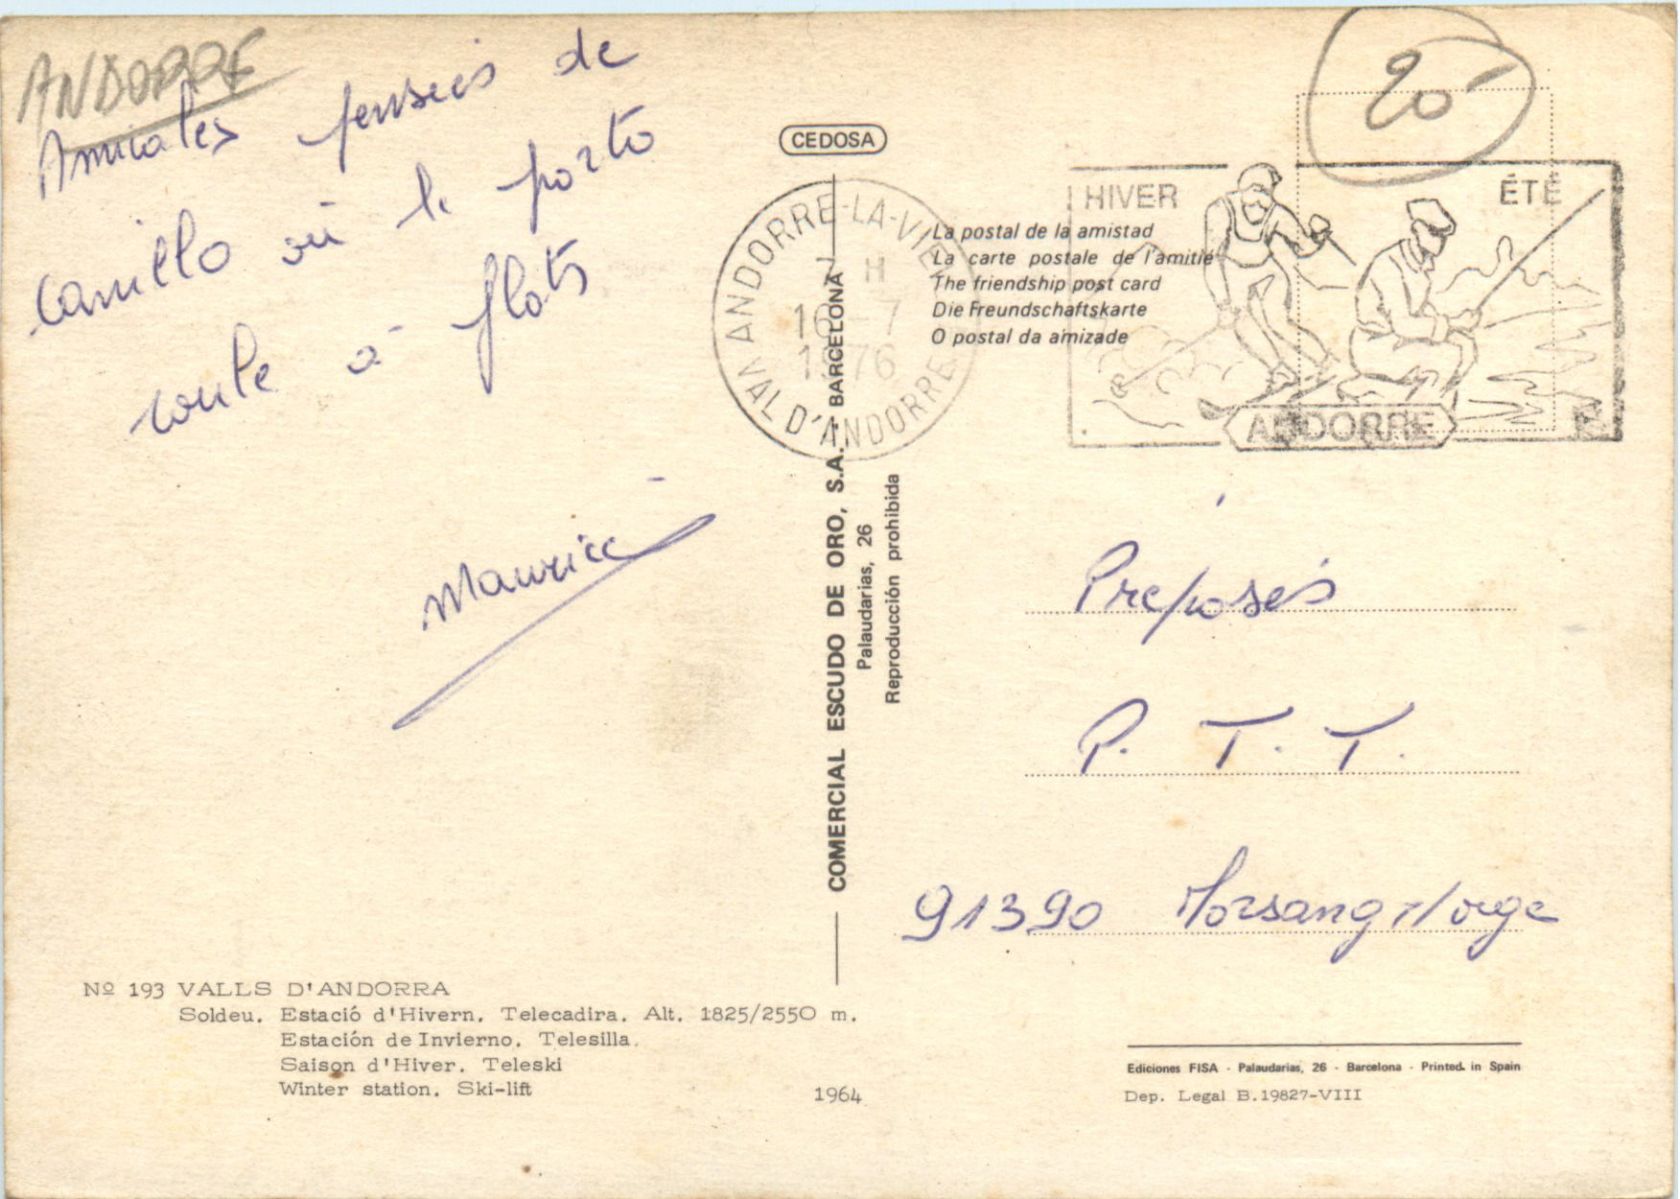 ANDORRE
Amicales pensées de
Camillo où le porto
coule à flots
Maurice
CEDOSA
COMERCIAL ESCUDO DE ORO, S.A. BARCELONA
Palaudarias, 26
Reproducción prohibida
20
ANDORRE-LA-VIEILLE
H
16-7
1976
VAL D'ANDORRE
HIVER
ÉTÉ
ANDORRE
La postal de la amistad
La carte postale de l'amitié
The friendship post card
Die Freundschaftskarte
O postal da amizade
Préposés
P. T. T.
91390 Morsang s/orge
Nº 193 VALLS D'ANDORRA
Soldeu. Estació d'Hivern. Telecadira. Alt. 1825/2550 m.
Estación de Invierno. Telesilla.
Saison d'Hiver. Teleski
Winter station. Ski-lift
1964
Ediciones FISA - Palaudarias, 26 - Barcelona - Printed in Spain
Dep. Legal B.19827-VIII